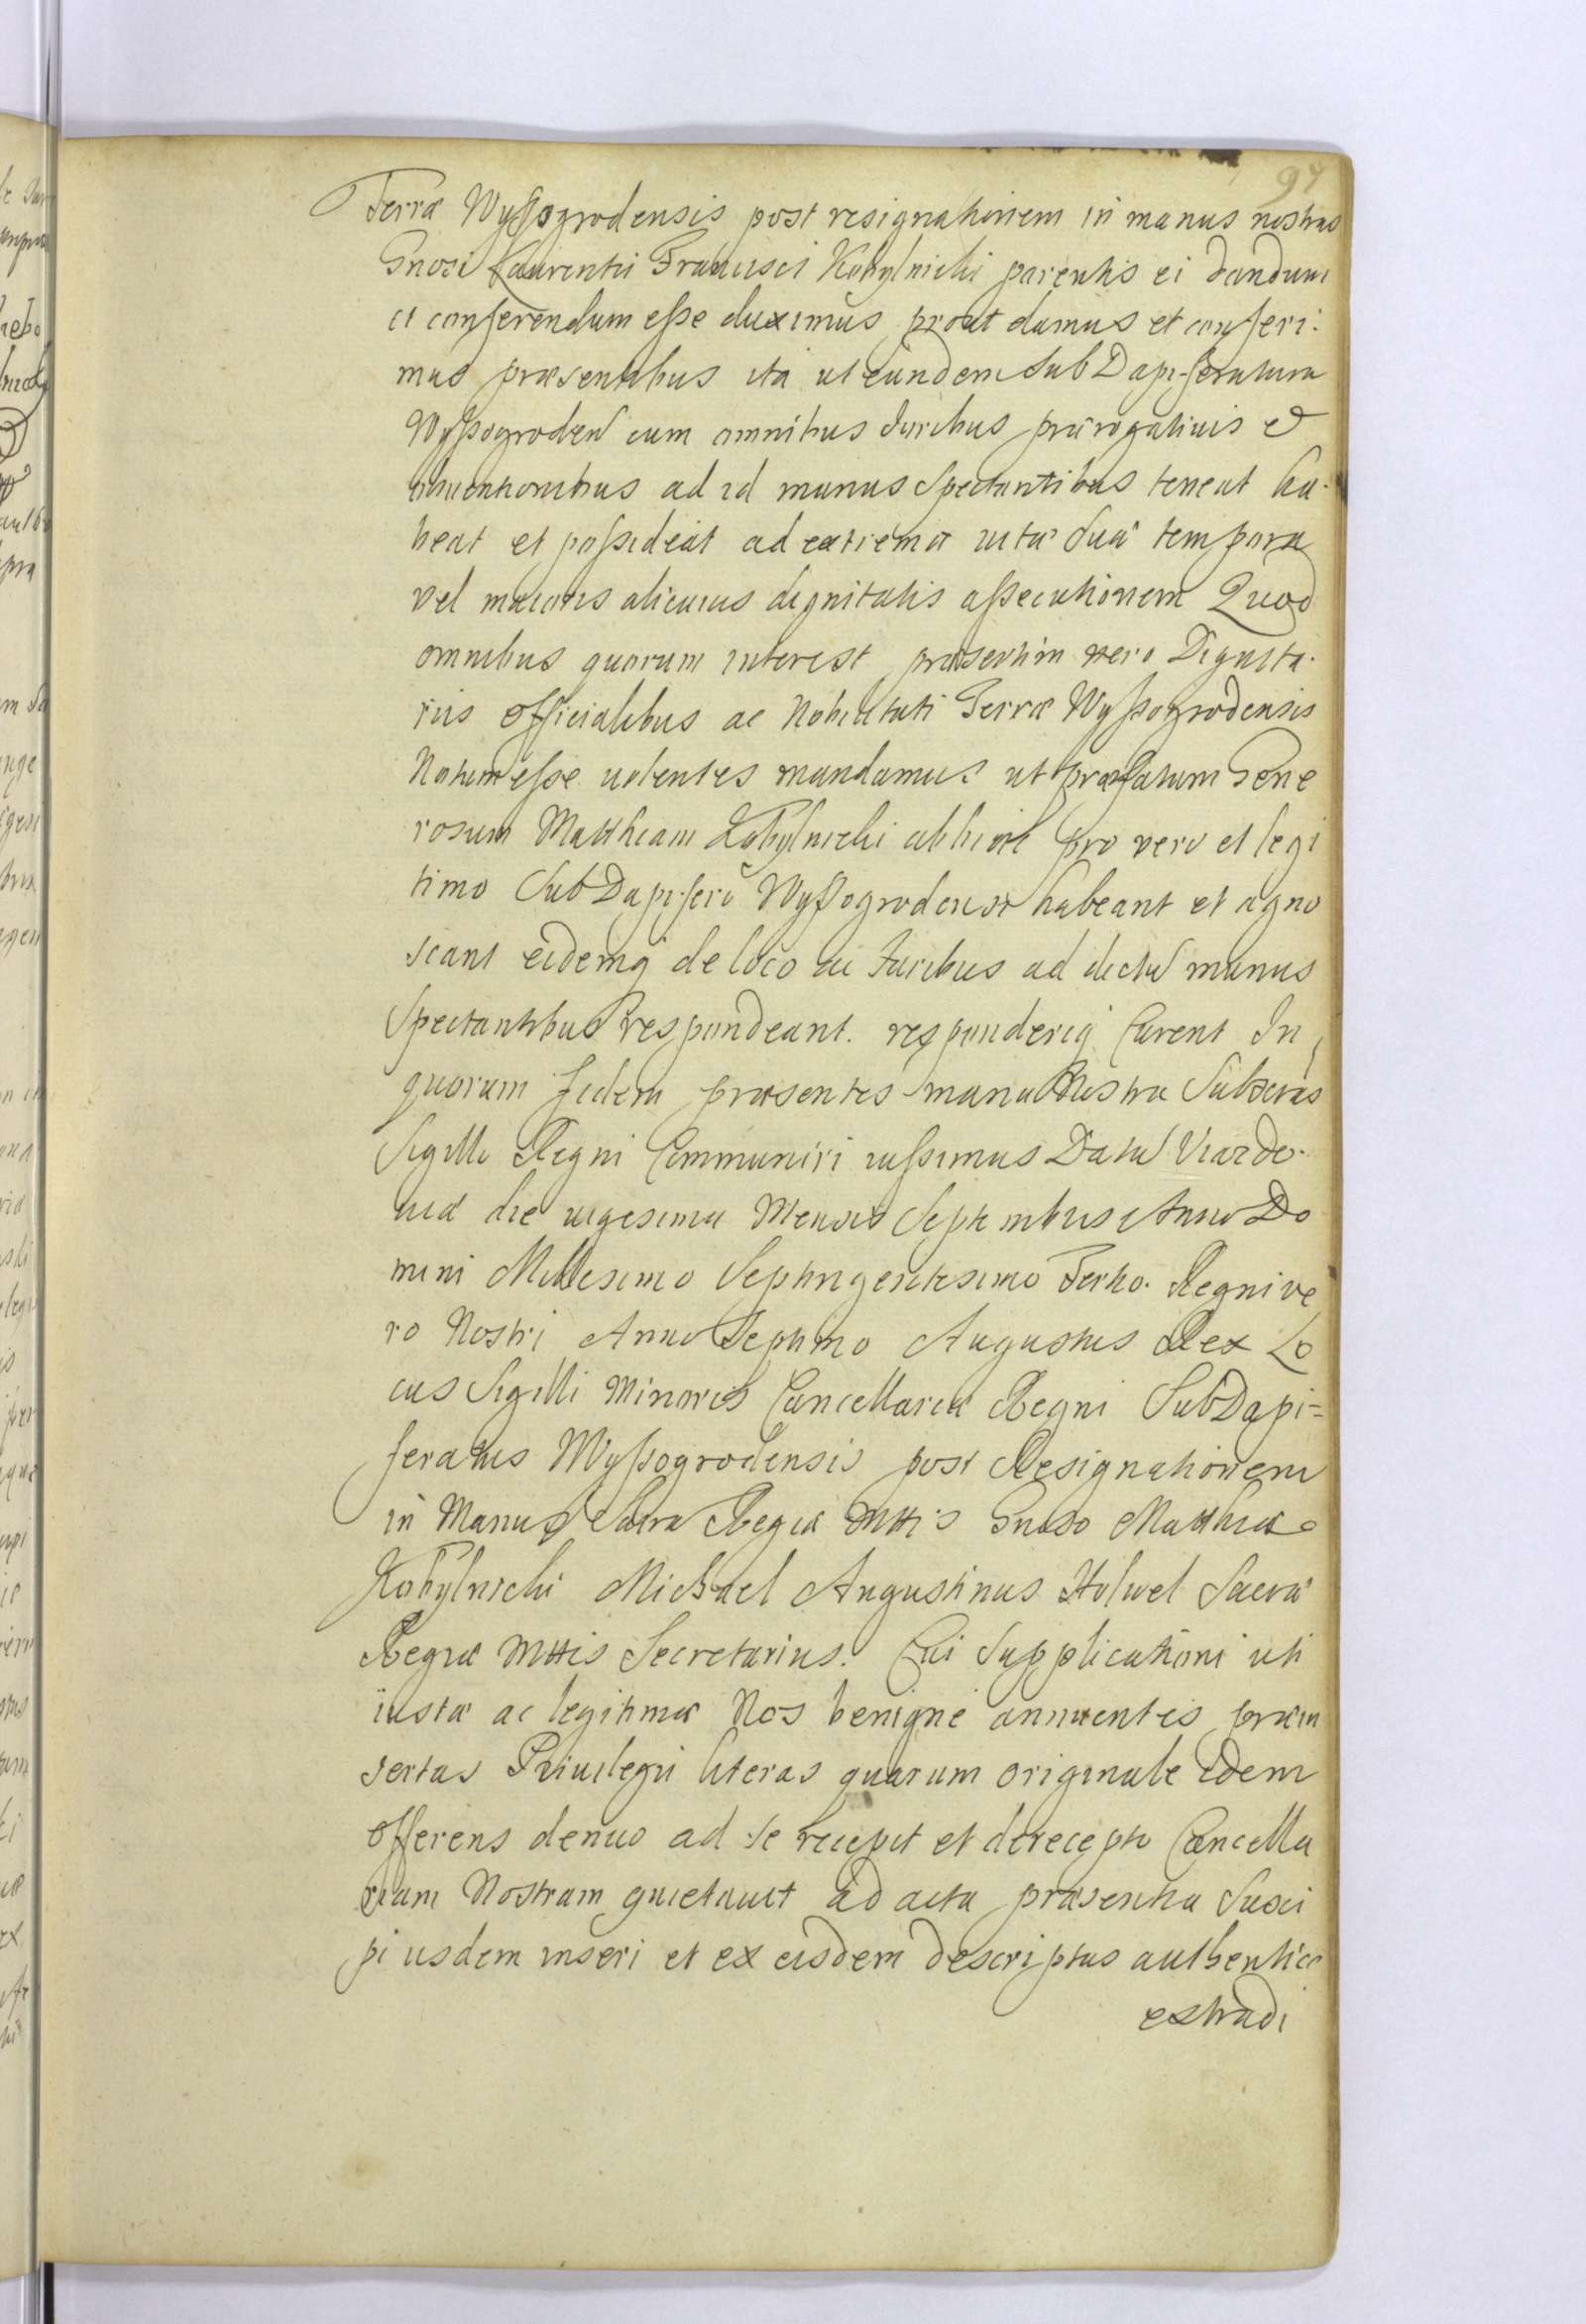 97
Terræ Wyssogrodensis post resignationem in manus nostras
Gnosi Laurentii Francisci Kobylnicki parentis ei dandum
et conferendum esse duximus prout damus et conferi:
mus præsentibus ita ut eundem SubDapiferatum
Wyssogroden cum omnibus Juribus prærogatiuis et
obuentionibus ad id munus Spectantibus teneat ha:
beat et possideat ad extrema vitæ Suæ tempora
vel maioris alicuius dignitatis assecutionem Quod
omnibus quorum interest præsertim vero Dignita:
riis officialibus ac Nobilitati Terræ Wyssogrodensis
Notum esse uolentes mandamus ut præfatum Gene
rosum Matthiam Kobylnicki abhinc pro vero et legi
timo SubDapifero Wyssogrodensi habeant et agno
scant eidemq de loco ac Juribus ad dictu munus
Spectantibus respondeant. responderiq Curent In
quorum fidem præsentes manu Nostra Subscras
Sigillo Regni Communiri iussimus Datu Viardo.
uiæ die uigesima Mensis Septembris Anno Do
mini Millesimo Septingentesimo Tertio. Regni ve
ro Nostri Anno Septimo Augustus Rex Lo
cus Sigilli Minoris Cancellariæ Regni SubDapi=
feratus Wyssogrodensis post Resignationem
in Manus Sacræ Regiæ Mttis Gnoso Matthiæ
Kobylnicki Michael Augustinus Holwel Sacræ
Regiæ Mttis Secretarius. Cui Supplicationi uti
iustæ ac legitimæ Nos benigne annuentes præin
sertas Priuilegii literas quarum originale Idem
offerens denuo ad se recepit et de recepto Cancella
riam Nostram quietauit ad acta præsentia Susci
pi iisdem inseri et ex eisdem descriptas authentice
extradi